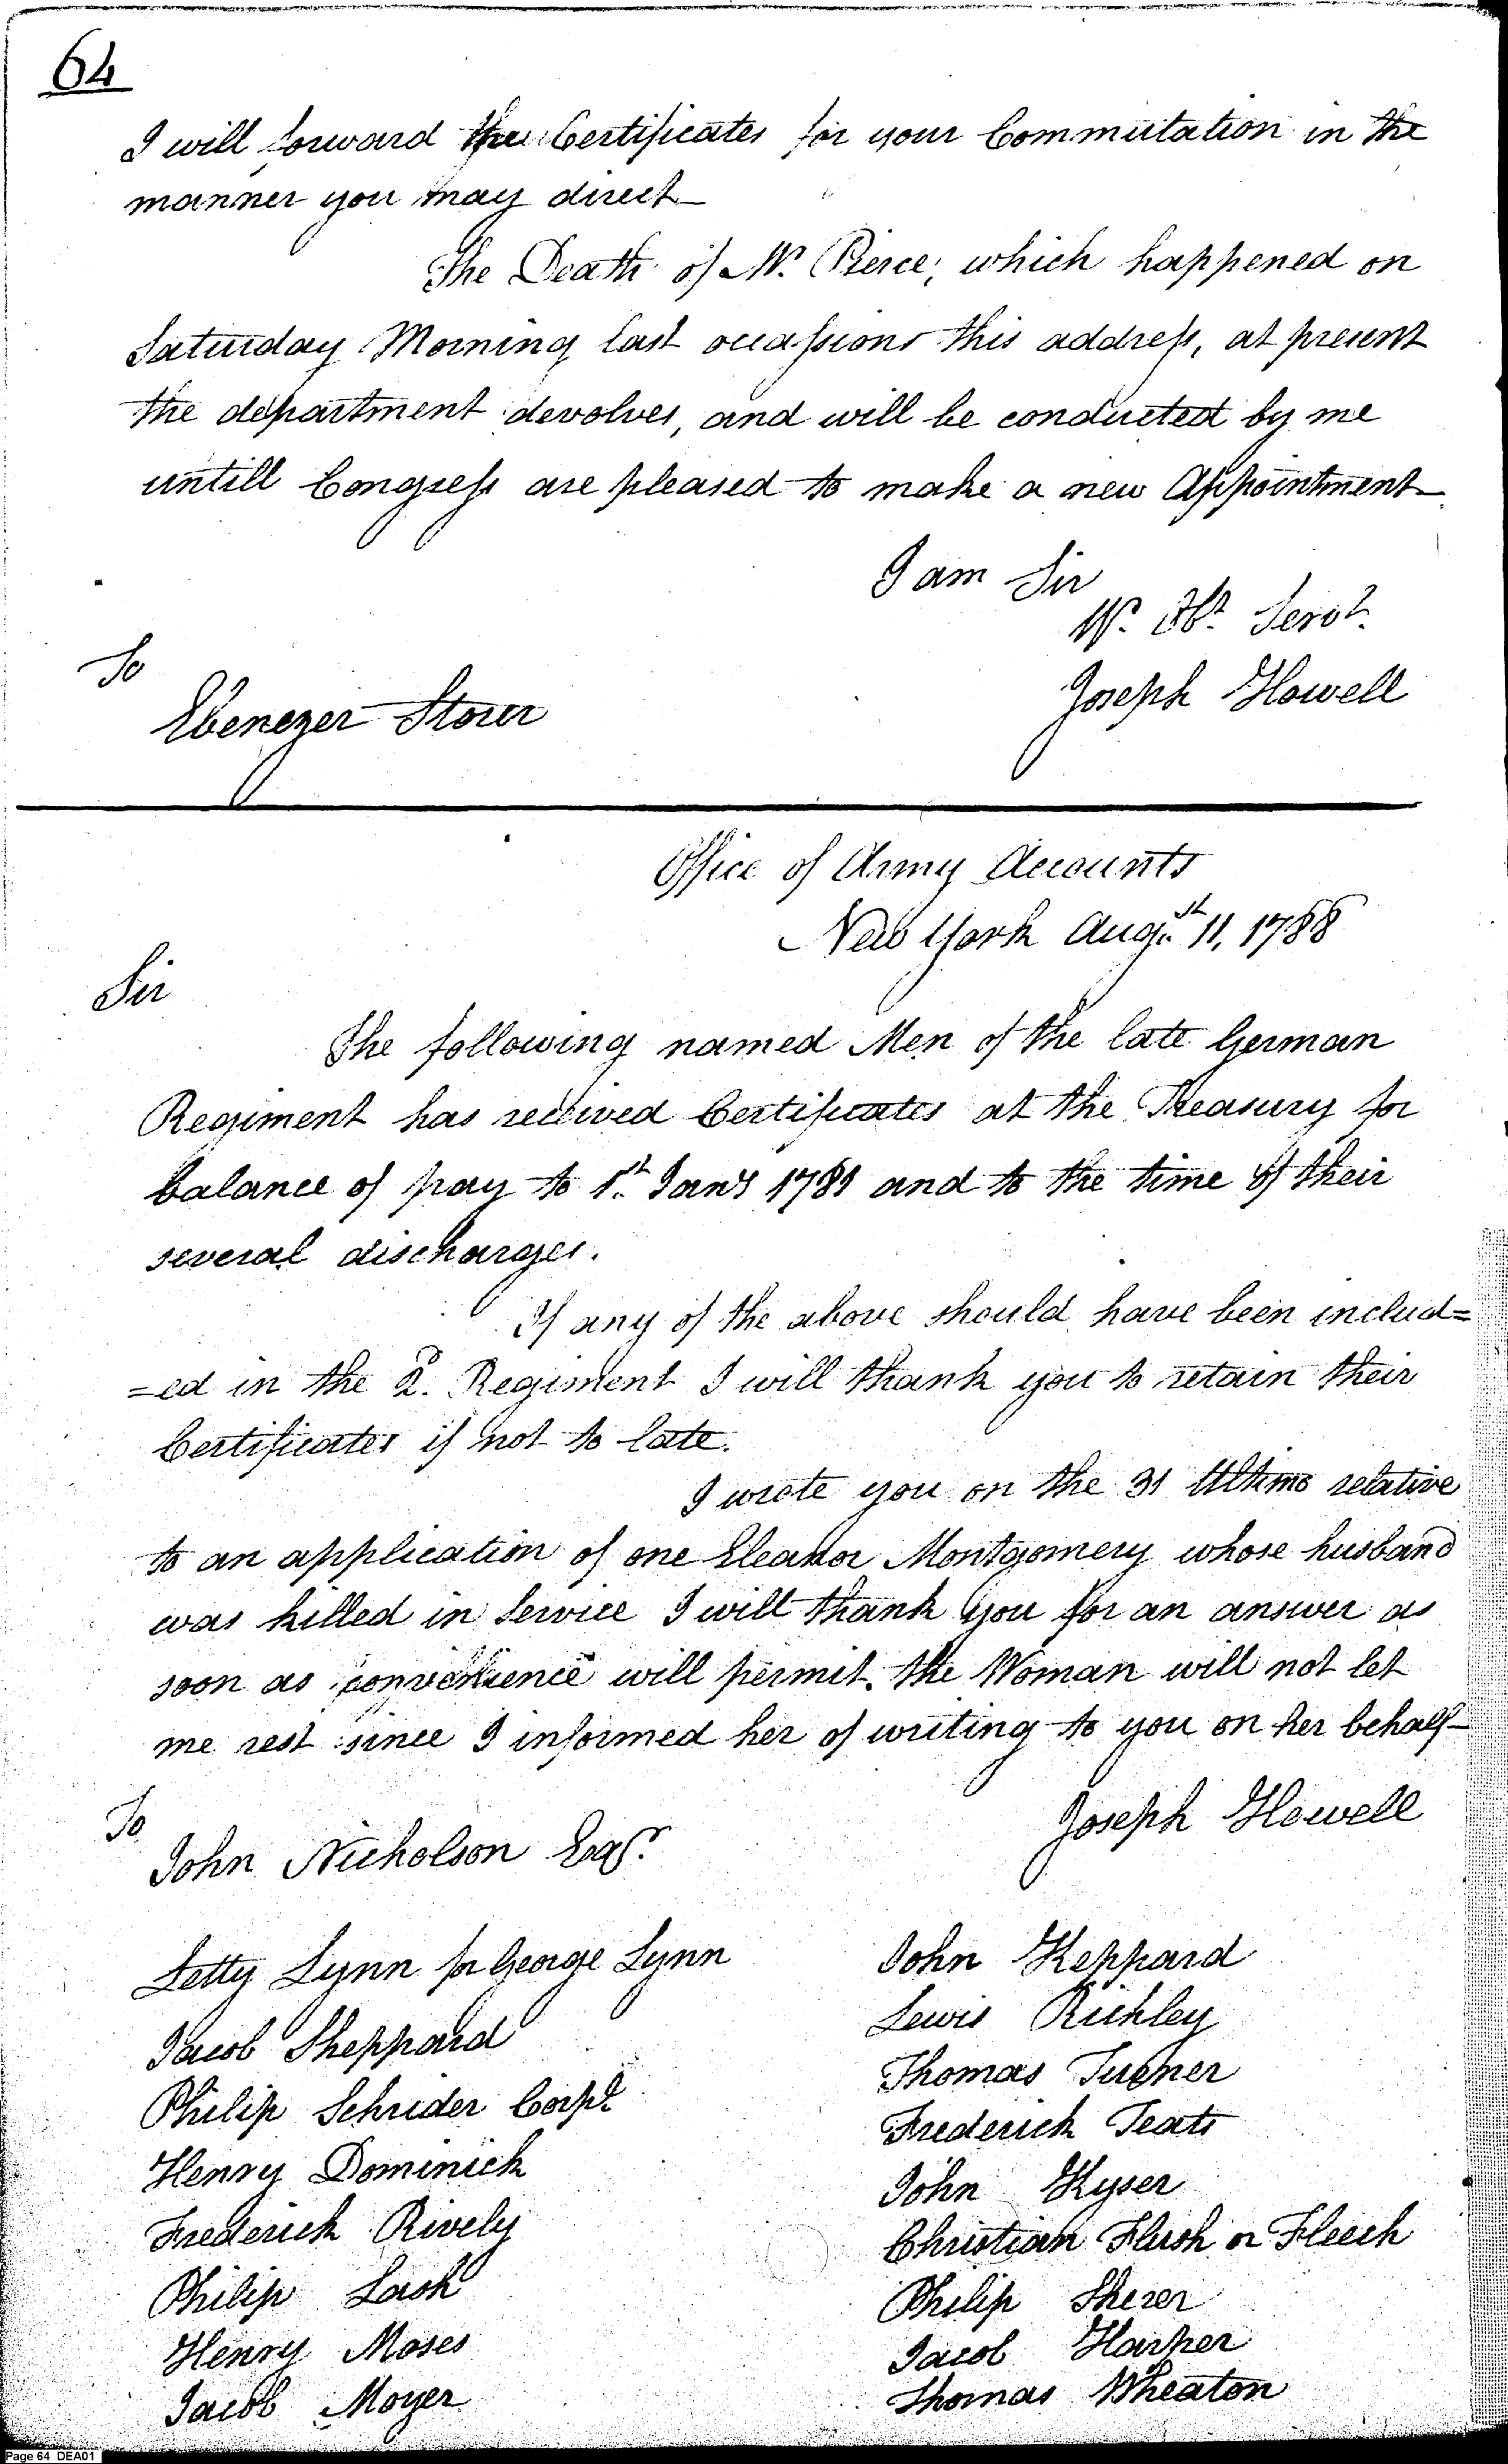 64
I will forward the Certificates for your Commutation in the
manner you may direct
The Death of Mr. Pierce, which happened on
Saturday Morning last occasions this address, at present
the department devolves, and will be conducted by me
untill Congress are pleased to make a new Appointment
I am Sir
Yr. Obt. Servt.
Joseph Howell
To
Ebenezer Storer
Office of Army Accounts
New York Augst. 11, 1788
Sir
The following named Men of the late German
Regiment has received Certificates at the Treasury for
balance of pay to 1st. Jany 1781 and to the time of their
several discharges.
If any of the above should have been includ=
=ed in the 2. Regiment I will thank you to retain their
Certificates if not to late.
I wrote you on the 31 Ultimo relative
to an application of one Eleanor Montgomery whose husband
was killed in Service I will thank you for an answer as
soon as convenience will permit. the Woman will not let
me rest since I informed her of writing to you on her behalf
Joseph Howell
To
John Nicholson Esqr.
Letty Lynn for George Lynn
Jacob Sheppard
Philip Schrider Corpl
Henry Dominick
Frederick Rively
Philip Lash
Henry Moses
Jacob Moyer
John Keppard
Lewis Richley
Thomas Turner
Frederick Teats
John Kyser
Christian Flush or Fleech
Philip Sherer
Jacob Harper
Thomas Wheaton
Page 64 DEA01